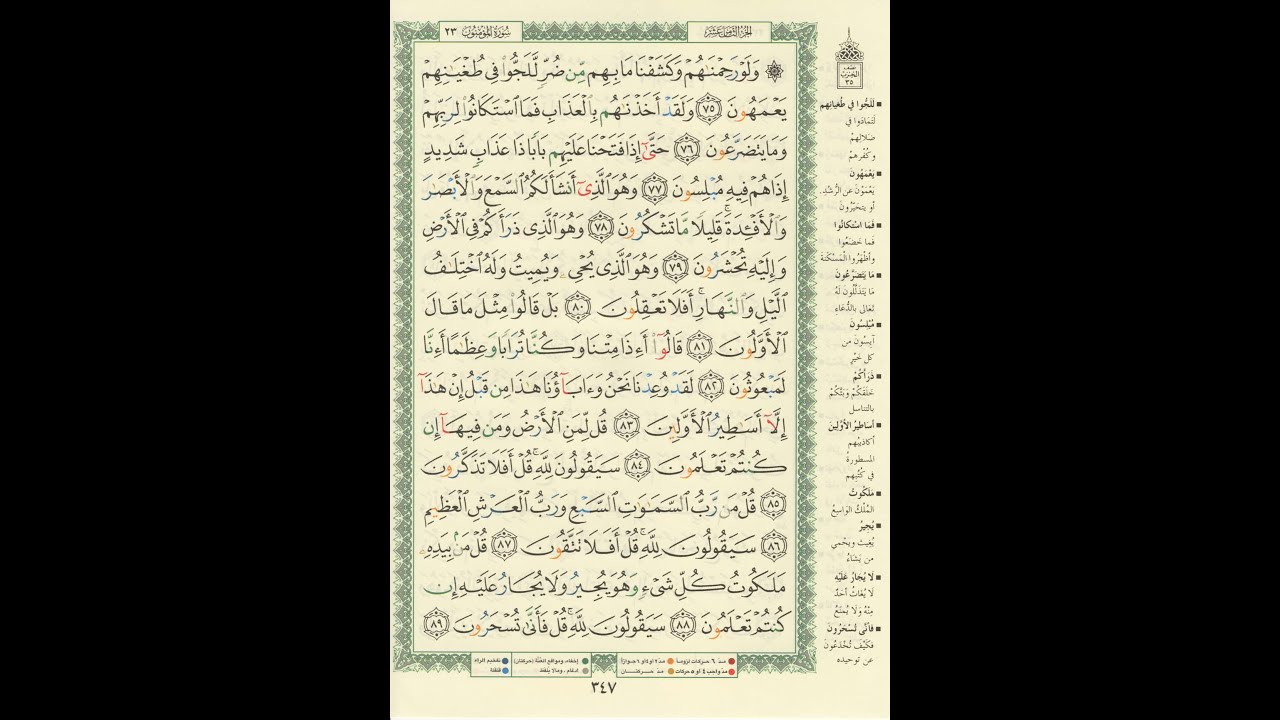 الجزء الثامن عشر
سورة المؤمنون ٢٣
۞ وَلَوْ رَحِمْنَٰهُمْ وَكَشَفْنَا مَا بِهِم مِّن ضُرٍّ لَّلَجُّوا۟ فِى طُغْيَٰنِهِمْ
يَعْمَهُونَ ٧٥ وَلَقَدْ أَخَذْنَٰهُم بِٱلْعَذَابِ فَمَا ٱسْتَكَانُوا۟ لِرَبِّهِمْ
وَمَا يَتَضَرَّعُونَ ٧٦ حَتَّىٰٓ إِذَا فَتَحْنَا عَلَيْهِم بَابًا ذَا عَذَابٍ شَدِيدٍ
إِذَا هُمْ فِيهِ مُبْلِسُونَ ٧٧ وَهُوَ ٱلَّذِىٓ أَنشَأَ لَكُمُ ٱلسَّمْعَ وَٱلْأَبْصَٰرَ
وَٱلْأَفْـِٔدَةَ ۚ قَلِيلًا مَّا تَشْكُرُونَ ٧٨ وَهُوَ ٱلَّذِى ذَرَأَكُمْ فِى ٱلْأَرْضِ
وَإِلَيْهِ تُحْشَرُونَ ٧٩ وَهُوَ ٱلَّذِى يُحْىِۦ وَيُمِيتُ وَلَهُ ٱخْتِلَٰفُ
ٱلَّيْلِ وَٱلنَّهَارِ ۚ أَفَلَا تَعْقِلُونَ ٨٠ بَلْ قَالُوا۟ مِثْلَ مَا قَالَ
ٱلْأَوَّلُونَ ٨١ قَالُوٓا۟ أَءِذَا مِتْنَا وَكُنَّا تُرَابًا وَعِظَٰمًا أَءِنَّا
لَمَبْعُوثُونَ ٨٢ لَقَدْ وُعِدْنَا نَحْنُ وَءَابَآؤُنَا هَٰذَا مِن قَبْلُ إِنْ هَٰذَآ
إِلَّآ أَسَٰطِيرُ ٱلْأَوَّلِينَ ٨٣ قُل لِّمَنِ ٱلْأَرْضُ وَمَن فِيهَآ إِن
كُنتُمْ تَعْلَمُونَ ٨٤ سَيَقُولُونَ لِلَّهِ ۚ قُلْ أَفَلَا تَذَكَّرُونَ
٨٥ قُلْ مَن رَّبُّ ٱلسَّمَٰوَٰتِ ٱلسَّبْعِ وَرَبُّ ٱلْعَرْشِ ٱلْعَظِيمِ
٨٦ سَيَقُولُونَ لِلَّهِ ۚ قُلْ أَفَلَا تَتَّقُونَ ٨٧ قُلْ مَنۢ بِيَدِهِۦ
مَلَكُوتُ كُلِّ شَىْءٍ وَهُوَ يُجِيرُ وَلَا يُجَارُ عَلَيْهِ إِن
كُنتُمْ تَعْلَمُونَ ٨٨ سَيَقُولُونَ لِلَّهِ ۚ قُلْ فَأَنَّىٰ تُسْحَرُونَ ٨٩
نصف
الحزب
٣٥
■ لَلَجُّوا فِي طُغْيَانِهِم
لَتَمَادَوا في
ضَلالِهِمْ
وكُفْرِهِمْ
■ يَعْمَهُونَ
يَعْمَوْنَ عن الرُّشْدِ.
أو يتحيَّرُونَ
■ فَمَا اسْتَكَانُوا
فَما خَضَعُوا
وأظْهَرُوا الْمَسْكَنَةَ
■ مَا يَتَضَرَّعُونَ
مَا يَتَذَلَّلُونَ لَهُ
تعَالى بالدُّعَاءِ
■ مُبْلِسُونَ
آيِسُونَ من
كل خَيْرٍ
■ ذَرَأَكُمْ
خَلَقَكُمْ وَبَثَّكُمْ
بالتناسل
■ أسَاطِيرُ الأوَّلِينَ
أكاذيبُهم
المسطورةُ
في كُتُبِهم
■ مَلَكُوتُ
المُلْكُ الوَاسِعُ
■ يُجِيرُ
يُغِيثُ ويَحْمي
من يَشَاءُ
■ لَا يُجَارُ عَلَيْهِ
لا يُغَاثُ أحَدٌ
مِنْهُ ولا يُمْنَعُ
■ فَأَنَّى تُسْحَرُونَ
فكَيْفَ تُخْدَعُونَ
عن توحيده
مدّ ٦ حركات لزوماً مدّ ٢ أو ٤ أو ٦ جوازاً
مدّ واجب ٤ أو ٥ حركات مدّ حركتان
إخفاء، ومواقع الغُنَّة (حركتان) تفخيم الراء
إدغام، وما لا يُلفَظ قلقلة
٣٤٧